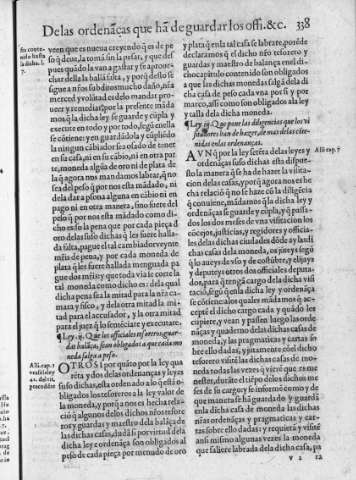 De las ordenãças que hã de guardar los offi. &c. 338
so conte-
nido hasta
la dicha. l.
7.
yeren que es nueua creyendo q̃ es de pe
so q̃ deue, la toma sin la pesar, y que des
pues quãdo la van a gastar y se aproue-
char della la hallã falta, y porq̃ desto se
sigue a ños subditos mucho daño, nía
merced y volũtad es delo mandar pro-
ueer y remediar: por la presente mãda
mos, q̃ la dicha ley se guarde y cũpla y
execute en todo y por todo, segũ en ella
se cõtiene: y en guardãdola y cũpliẽdo
la ningun cãbiador sea osado de tener
en su casa, ni en su cãbio, ni en otra par
te, moneda algũa de oro ni de plata de
la q̃ agora nos mandamos labrar, q̃ no
sea del peso q̃ por nos esta mãdado, ni
dela dar a persona alguna en cãbio ni en
pago ni en otra manera, sino fuere del
peso q̃ por nos esta mãdado como di-
cho es: so la pena que por cada pieça d̃
oro delas suso dichas q̃ les fuere halla-
da falta, pague el tal cambiador veynte
mil mrs̃ de pena, y por cada moneda de
plata q̃ les fuere hallada menguada pa
gue dos mil mrs̃ y que toda via le corte la
tal moneda como dicho es: dela qual
dicha pena sea la mitad para la nía ca-
mara y fisco, y dela otra mitad la mi-
tad para el accusador, y la otra mitad
para el juez q̃ lo sentẽciare y executare.
¶ Ley. ij. Que los officiales no
dar balãças, sean obligados a que toda mo
neda salga a peso.
Allí cap. 7
O TROSI por quãto por la ley qua
reta y dos delas ordenanças y leyes
suso dichas, esta ordenado a lo q̃ estã o-
bligados los tesoreros a la ley y valor de
la moneda, y porq̃ a nos es hecha rela-
ciõ q̃ algunos delos dichos ños tesore
ros y guardas y maestro dela balãça de
las dichas casas, dadã si por virtud dela
dicha ley e ordenãça son obligados al
peso de cada pieça por menudo de oro
y plata q̃ en la tal casa se labrare, porẽde
declaramos q̃ el dicho ño tesorero y
guardas y maestro de balança enel di-
cho capitulo contenido son obligados
a que las dichas monedas salgã dela di
cha casa de peso cada vna por si y por
marco, assi como son obligados ala ley
y talla dela dicha moneda.
¶ Ley. iij. Que pone las diligencias que los vi
sitadores han de hazer, de mas delas cõte-
nidas en las ordenanças.
Allí cap. 7
A VNQ̃ por la ley seteta delas leyes y
ordenãças suso dichas esta dispue-
sto la manera q̃ se ha de hazer la visita-
cion delas casas, y porq̃ agora nos es he
cha relaciõ q̃ no se haze cõ la diligencia
q̃ conuiene, mãdamos q̃ la dicha ley y
ordenãças se guarde y cũpla, y q̃ passa-
dos los dos meses de vna visitaciõ los
cõcejos, justicias, y regidores y officia-
les delas dichas ciudades dõde ay las di
chas casas dela moneda, os jũteys segũ
q̃ lo aueys de vso y de costũbre, y elijays
y deputeys otros dos officiales depura-
dos, para q̃ tengã cargo dela dicha visi
taciõ, segũ q̃ enla dicha ley y ordenãça
se cõtiene: a los quales mãda mos q̃ acce
pté el dicho cargo cada y quãdo les
cupiere, y vean y passen luego las orde-
nanças y quaderno delas dichas casas d̃
moneda, y las pragmaticas y cartas so
bre ello dadas, y jutamente cõel dicho
tesorero visitẽ las dichas casas de mo-
neda todas las vezes q̃ vierẽ que es me
nester, durãte el tiẽpo delos dichos me
ses de su cargo: y se informẽ como y de
que manera se hã guardado y guardã
enla dicha casa de moneda las dichas
nías ordenãças y pragmaticas y car-
tas sobre ello dadas y requierã y visitẽ
ansi mismo algunas vezes la moneda
que saliere labrada dela dicha casa, pa
V 2 ra